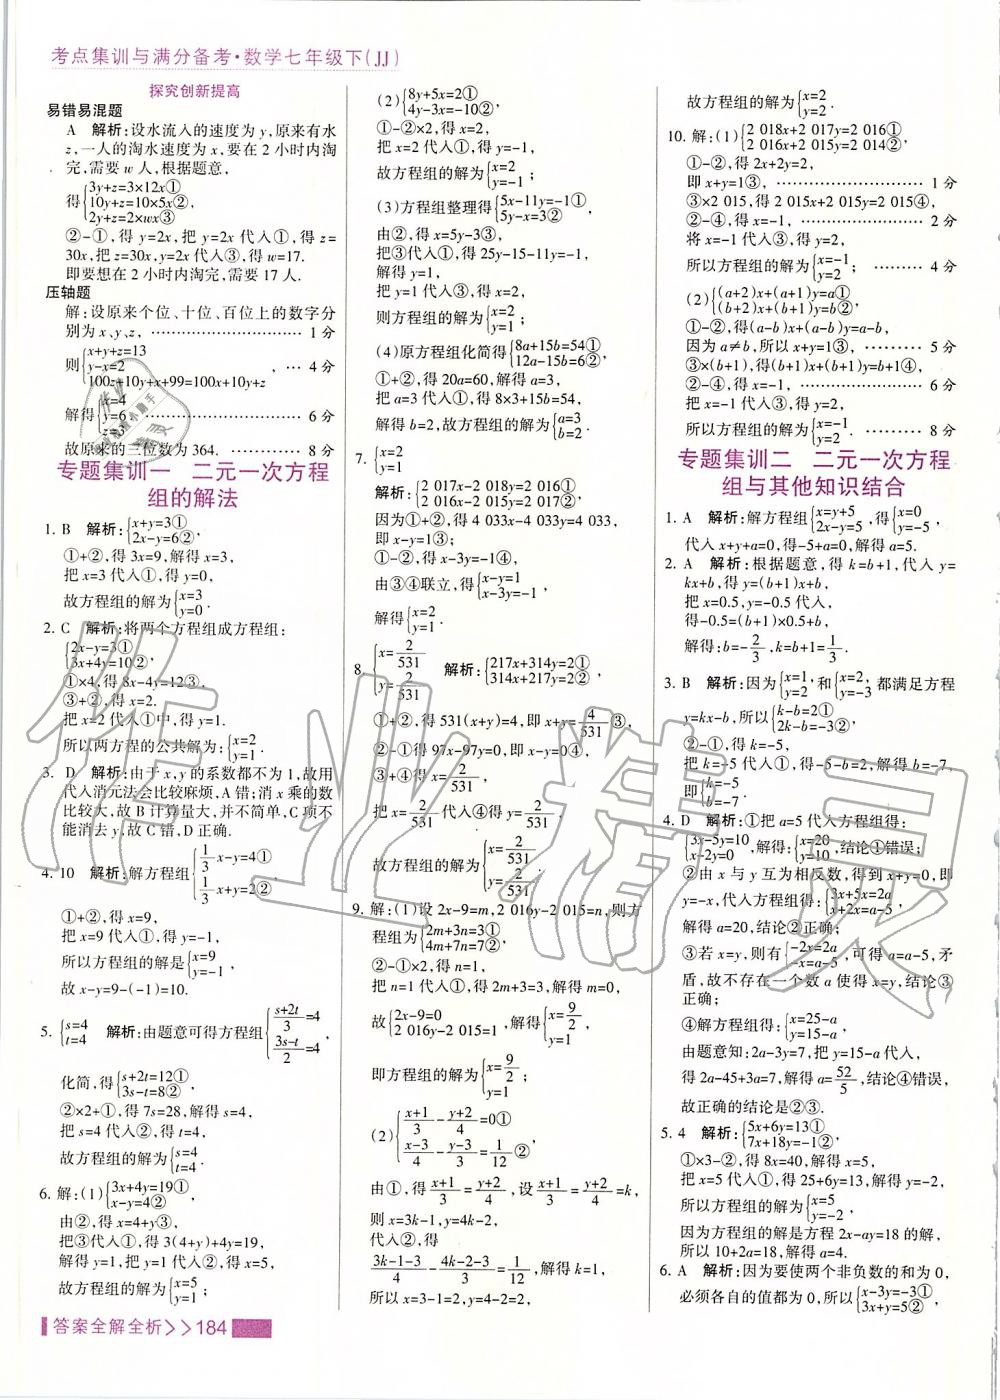 考点集训与满分备考·数学七年级下(JJ)
探究创新提高
易错易混题
A 解析:设水流入的速度为y,原来有水
z,一人的淘水速度为x,要在2小时内淘
完,需要w人,根据题意,
得{3y+z=3×12x①
10y+z=10×5x②,
2y+z=2×wx③
②-①,得y=2x,把y=2x代入①,得z=
30x,把z=30x,y=2x代入③,得w=17.
即要想在2小时内淘完,需要17人.
压轴题
解:设原来个位、十位、百位上的数字分
别为x、y、z, …… 1分
则{x+y+z=13
y-x=2
100z+10y+x+99=100x+10y+z
, … 4分
解得{x=4
y=6
z=3
…… 6分
故原来的三位数为364. …… 8分
专题集训一 二元一次方程
组的解法
1. B 解析:{x+y=3①
2x-y=6②,
①+②,得3x=9,解得x=3,
把x=3代入①,得y=0,
故方程组的解为{x=3
y=0.
2. C 解析:将两个方程组成方程组:
{2x-y=3①
3x+4y=10②,
①×4,得8x-4y=12③,
③+②,得x=2.
把x=2代入①中,得y=1.
所以两方程的公共解为:{x=2
y=1.
3. D 解析:由于x,y的系数都不为1,故用
代入消元法会比较麻烦,A错;消x乘的数
比较大,故B计算量大,并不简单,C项不
能消去y,故C错,D正确.
4. 10 解析:解方程组{1/3x-y=4①
1/3x+y=2②.
①+②,得x=9,
把x=9代入①,得y=-1,
所以方程组的解是{x=9
y=-1.
故x-y=9-(-1)=10.
5. {s=4
t=4 解析:由题意可得方程组{(s+2t)/3=4
(3s-t)/2=4,
化简,得{s+2t=12①
3s-t=8②,
②×2+①,得7s=28,解得s=4,
把s=4代入②,得t=4,
故方程组的解为{s=4
t=4.
6. 解:(1){3x+4y=19①
x-y=4②,
由②,得x=4+y③,
把③代入①,得3(4+y)+4y=19,
解得y=1,把y=1代入②,得x=5,
故方程组的解为{x=5
y=1;
(2){8y+5x=2①
4y-3x=-10②,
①-②×2,得x=2,
把x=2代入①,得y=-1,
故方程组的解为{x=2
y=-1;
(3)方程组整理得{5x-11y=-1①
5y-x=3②,
由②,得x=5y-3③,
把③代入①,得25y-15-11y=-1,
解得y=1,
把y=1代入③,得x=2,
则方程组的解为{x=2
y=1;
(4)原方程组化简得{8a+15b=54①
12a-15b=6②,
①+②,得20a=60,解得a=3,
把a=3代入①,得8×3+15b=54,
解得b=2,故方程组的解为{a=3
b=2.
7. {x=2
y=1
解析:{2 017x-2 018y=2 016①
2 016x-2 015y=2 017②,
因为①+②,得4 033x-4 033y=4 033,
即x-y=1③;
①-②,得x-3y=-1④,
由③④联立,得{x-y=1
x-3y=-1,
解得{x=2
y=1.
8. {x=2/531
y=2/531 解析:{217x+314y=2①
314x+217y=2②,
①+②,得531(x+y)=4,即x+y=4/531③,
②-①得97x-97y=0,即x-y=0④,
③+④得x=2/531,
把x=2/531代入④得y=2/531,
故方程组的解为{x=2/531
y=2/531.
9. 解:(1)设2x-9=m,2 016y-2 015=n,则方
程组为{2m+3n=3①
4m+7n=7②,
②-①×2,得n=1,
把n=1代入①,得2m+3=3,解得m=0,
故{2x-9=0
2 016y-2 015=1,解得{x=9/2
y=1,
即方程组的解为{x=9/2
y=1;
(2){(x+1)/3-(y+2)/4=0①
(x-3)/4-(y-3)/3=1/12②,
由①,得(x+1)/3=(y+2)/4,设(x+1)/3=(y+2)/4=k,
则x=3k-1,y=4k-2,
代入②,得
(3k-1-3)/4-(4k-2-3)/3=1/12,解得k=1,
所以x=3-1=2,y=4-2=2,
故方程组的解为{x=2
y=2.
10. 解:(1){2 018x+2 017y=2 016①
2 016x+2 015y=2 014②,
①-②,得2x+2y=2,
即x+y=1③, …… 1分
③×2 015,得2 015x+2 015y=2 015④,
②-④,得x=-1, …… 2分
将x=-1代入③,得y=2,
所以方程组的解为{x=-1
y=2; …… 4分
(2){(a+2)x+(a+1)y=a①
(b+2)x+(b+1)y=b②,
①-②,得(a-b)x+(a-b)y=a-b,
因为a≠b,所以x+y=1③, …… 5分
③×(b+1),得(b+1)x+(b+1)y=b+1④,
②-④,得x=-1, …… 6分
把x=-1代入③,得y=2,
所以方程组的解为{x=-1
y=2. …… 8分
专题集训二 二元一次方程
组与其他知识结合
1. A 解析:解方程组{x=y+5
2x-y=5,得{x=0
y=-5,
代入x+y+a=0,得-5+a=0,解得a=5.
2. A 解析:根据题意,得k=b+1,代入y=
kx+b,得y=(b+1)x+b,
把x=0.5,y=-0.5代入,
得-0.5=(b+1)×0.5+b,
解得:b=-2/3,k=b+1=1/3.
3. B 解析:因为{x=1,
y=2,和{x=2,
y=-3都满足方程
y=kx-b,所以{k-b=2①
2k-b=-3②,
②-①,得k=-5,
把k=-5代入①,得-5-b=2,解得b=-7,
即{k=-5
b=-7.
4. D 解析:①把a=5代入方程组得:
{3x-5y=10,
x-2y=0 解得:{x=20
y=10,结论①错误;
②由x与y互为相反数,得到x+y=0,即
y=-x,代入方程组得:{3x+5x=2a
x+2x=a-5,
解得a=20,结论②正确;
③若x=y,则有{-2x=2a
-x=a-5,可得a=a-5,矛
盾,故不存在一个数a使得x=y,结论③
正确;
④解方程组得:{x=25-a
y=15-a,
由题意知:2a-3y=7,把y=15-a代入,
得2a-45+3a=7,解得a=52/5,结论④错误,
故正确的结论是②③.
5. 4 解析:{5x+6y=13①
7x+18y=-1②,
①×3-②,得8x=40,解得x=5,
把x=5代入①,得25+6y=13,解得y=-2,
所以方程组的解为{x=5
y=-2,
因为方程组的解是方程2x-ay=18的解,
所以10+2a=18,解得a=4.
6. A 解析:因为要使两个非负数的和为0,
必须各自的值都为0,所以{x-3y=-3①
3x+y=5②,
答案全解全析>>>184
作业精灵